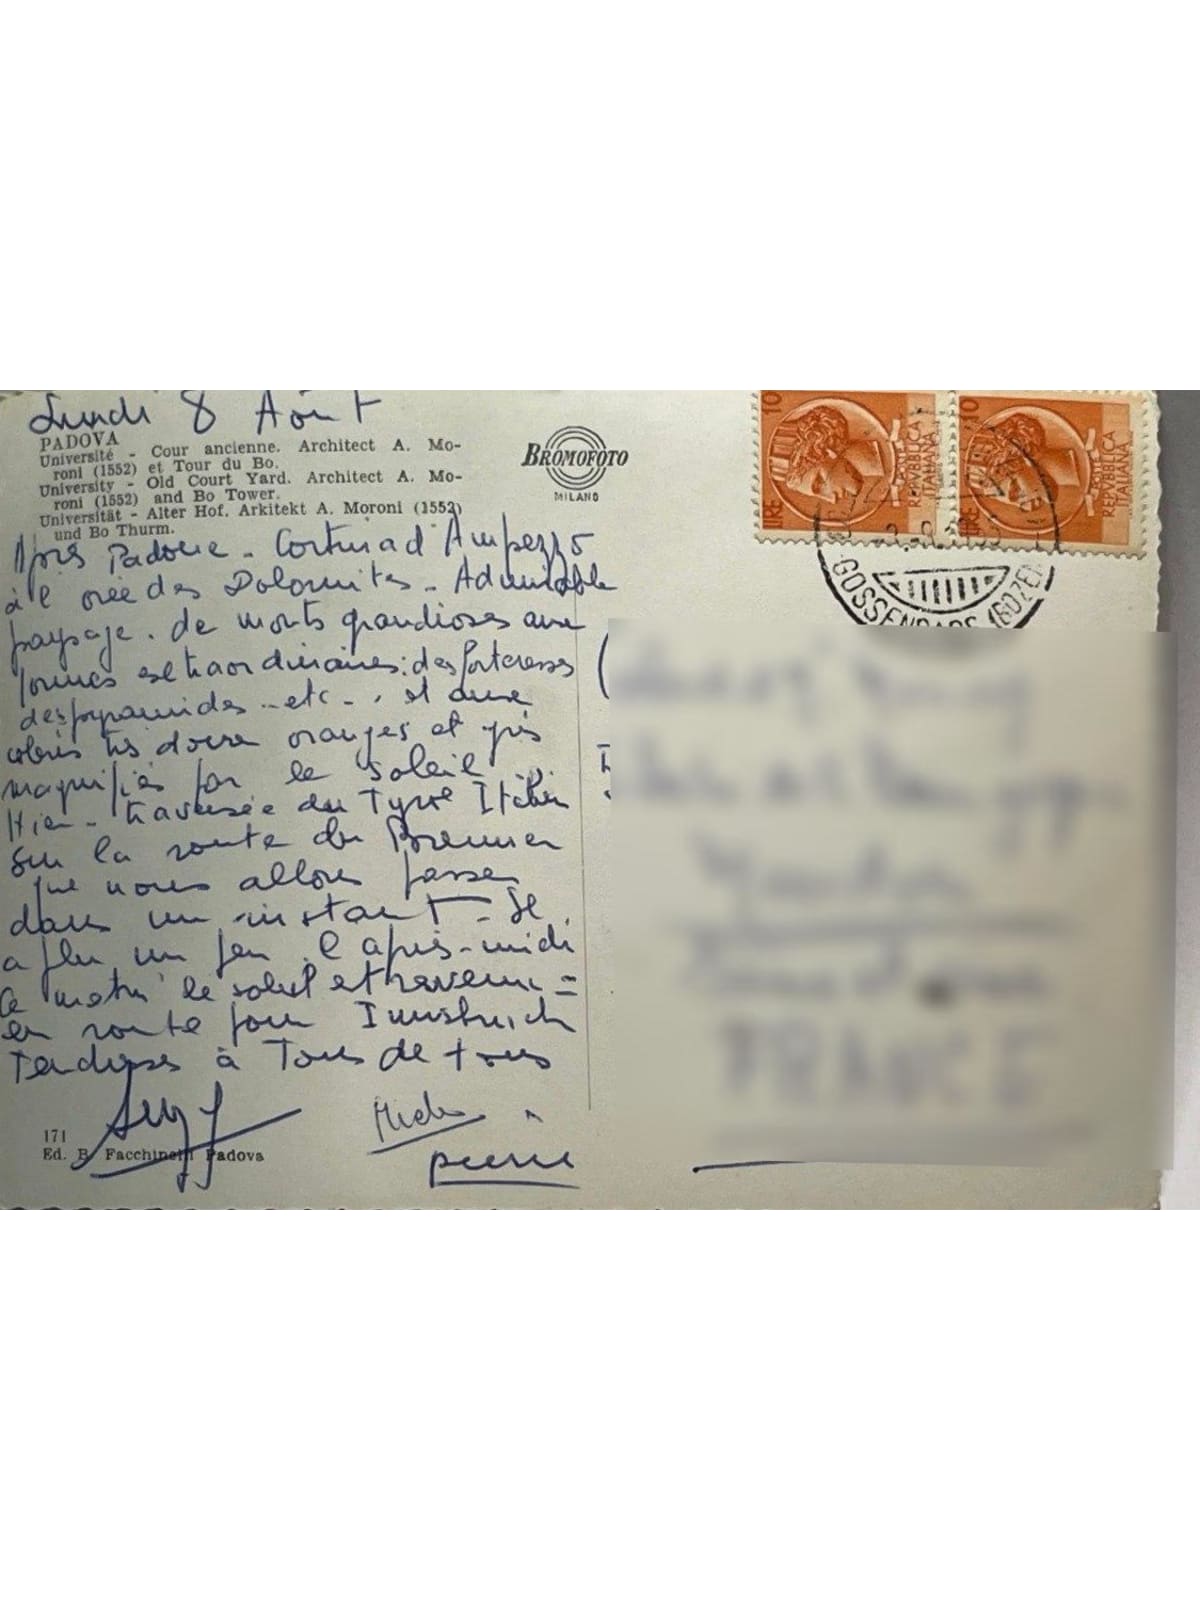 Lundi 8 Août
PADOVA
Université - Cour ancienne. Architect A. Mo-
roni (1552) et Tour du Bo.
University - Old Court Yard. Architect A. Mo-
roni (1552) and Bo Tower.
Universität - Alter Hof. Arkitekt A. Moroni (1552)
und Bo Thurm.
BROMOFOTO
MILANO
10 LIRE
REPVBBLICA
ITALIANA
10 LIRE
REPVBBLICA
ITALIANA
GOSSENSASS (BOZEN
Après Padoue - Cortina d'Ampezzo
à l'orée des Dolomites - Admirable
paysage. de monts grandioses aux
formes extraordinaires: des forteresses
des pyramides .. etc - , et aux
coloris très doux oranges et gris
magnifiés par le soleil
Hier - traversée du Tyrol Italien
sur la route du Brenner
que nous allons passer
dans un instant - Il
a plu un peu l'après-midi
Ce matin le soleil est revenu =
en route pour Innsbruck
Tendresses à Tous de tous
Pierre
171
Ed. B. Facchinelli Padova
FRANCE